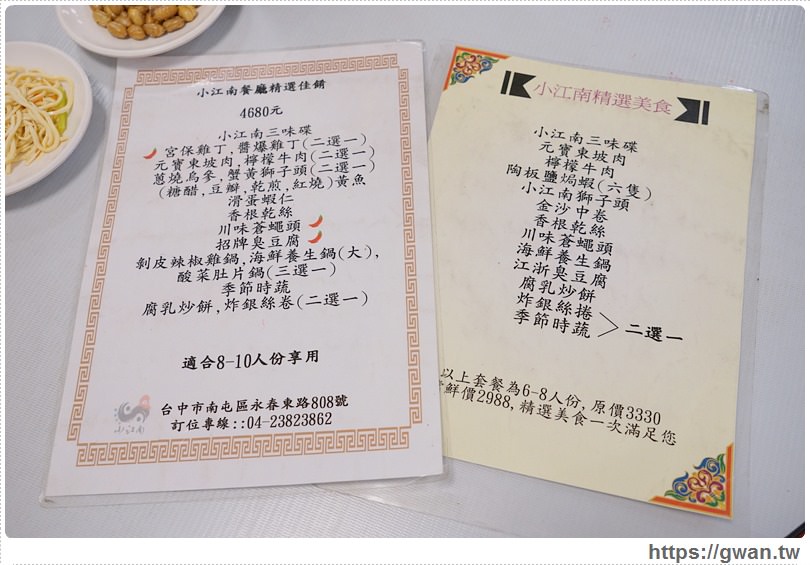 小江南餐廳精選佳餚
4680元
小江南三味碟
宮保雞丁,醬爆雞丁(二選一)
元寶東坡肉,檸檬牛肉(二選一)
蔥燒烏參,蟹黃獅子頭(二選一)
(糖醋,豆瓣,乾煎,紅燒)黃魚
滑蛋蝦仁
香根乾絲
川味蒼蠅頭
招牌臭豆腐
剝皮辣椒雞鍋,海鮮養生鍋(大),
酸菜肚片鍋(三選一)
季節時蔬
腐乳炒餅,炸銀絲卷(二選一)
適合8-10人份享用
小江南
台中市南屯區永春東路808號
訂位專線::04-23823862
小江南精選美食
小江南三味碟
元寶東坡肉
檸檬牛肉
陶板鹽焗蝦(六隻)
小江南獅子頭
金沙中卷
香根乾絲
川味蒼蠅頭
海鮮養生鍋
江浙臭豆腐
腐乳炒餅
炸銀絲捲
季節時蔬
二選一
以上套餐為6-8人份,原價3330
鮮價2988,精選美食一次滿足您
https://gwan.tw